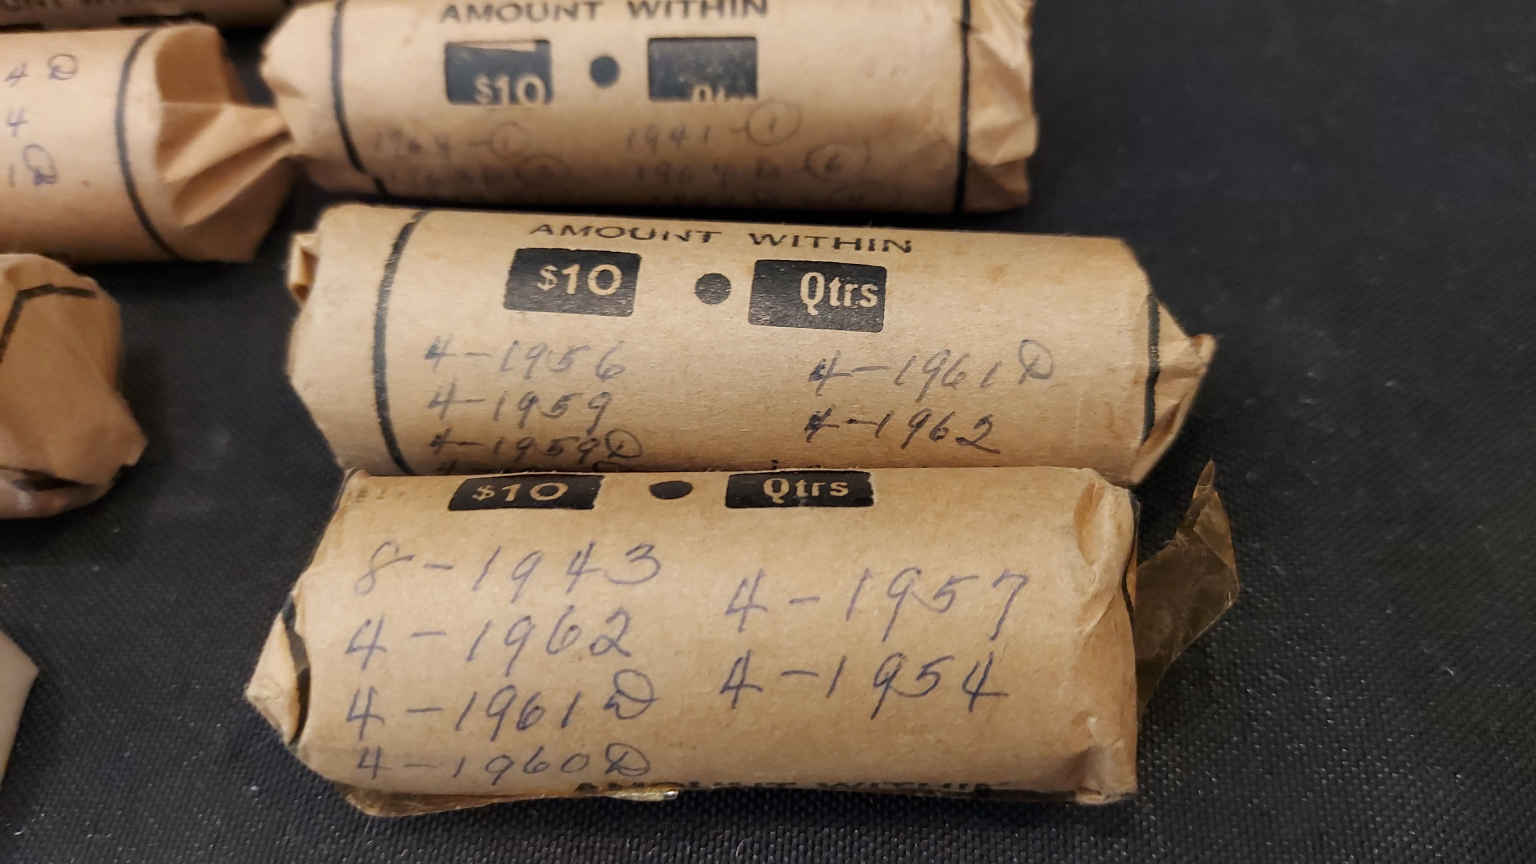 AMOUNT WITHIN
$10 Qtrs
4 D
4
1D.
1941-1
AMOUNT WITHIN
$10 Qtrs
4-1956
4-1959
4-1959D
4-1961D
4-1962
$10 Qtrs
8-1943
4-1962
4-1961D
4-1960D
4-1957
4-1954
AMOUNT WITHIN